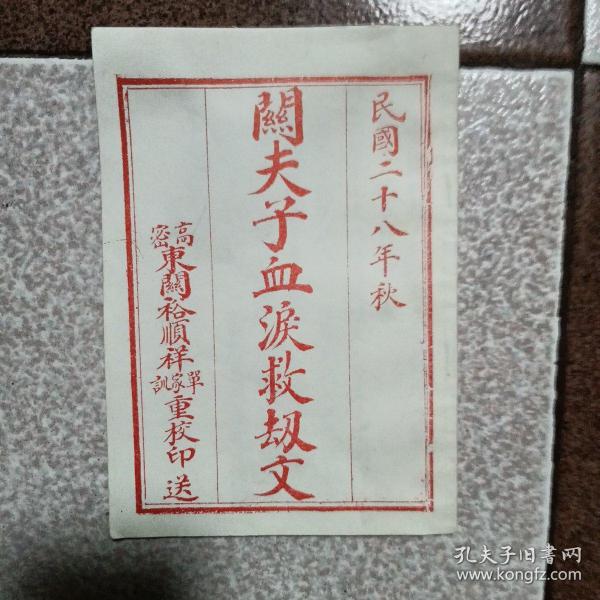 民國二十八年秋
關夫子血淚救劫文
高密東關裕順祥單家訓重校印送
孔夫子旧書网
www.kongfz.com